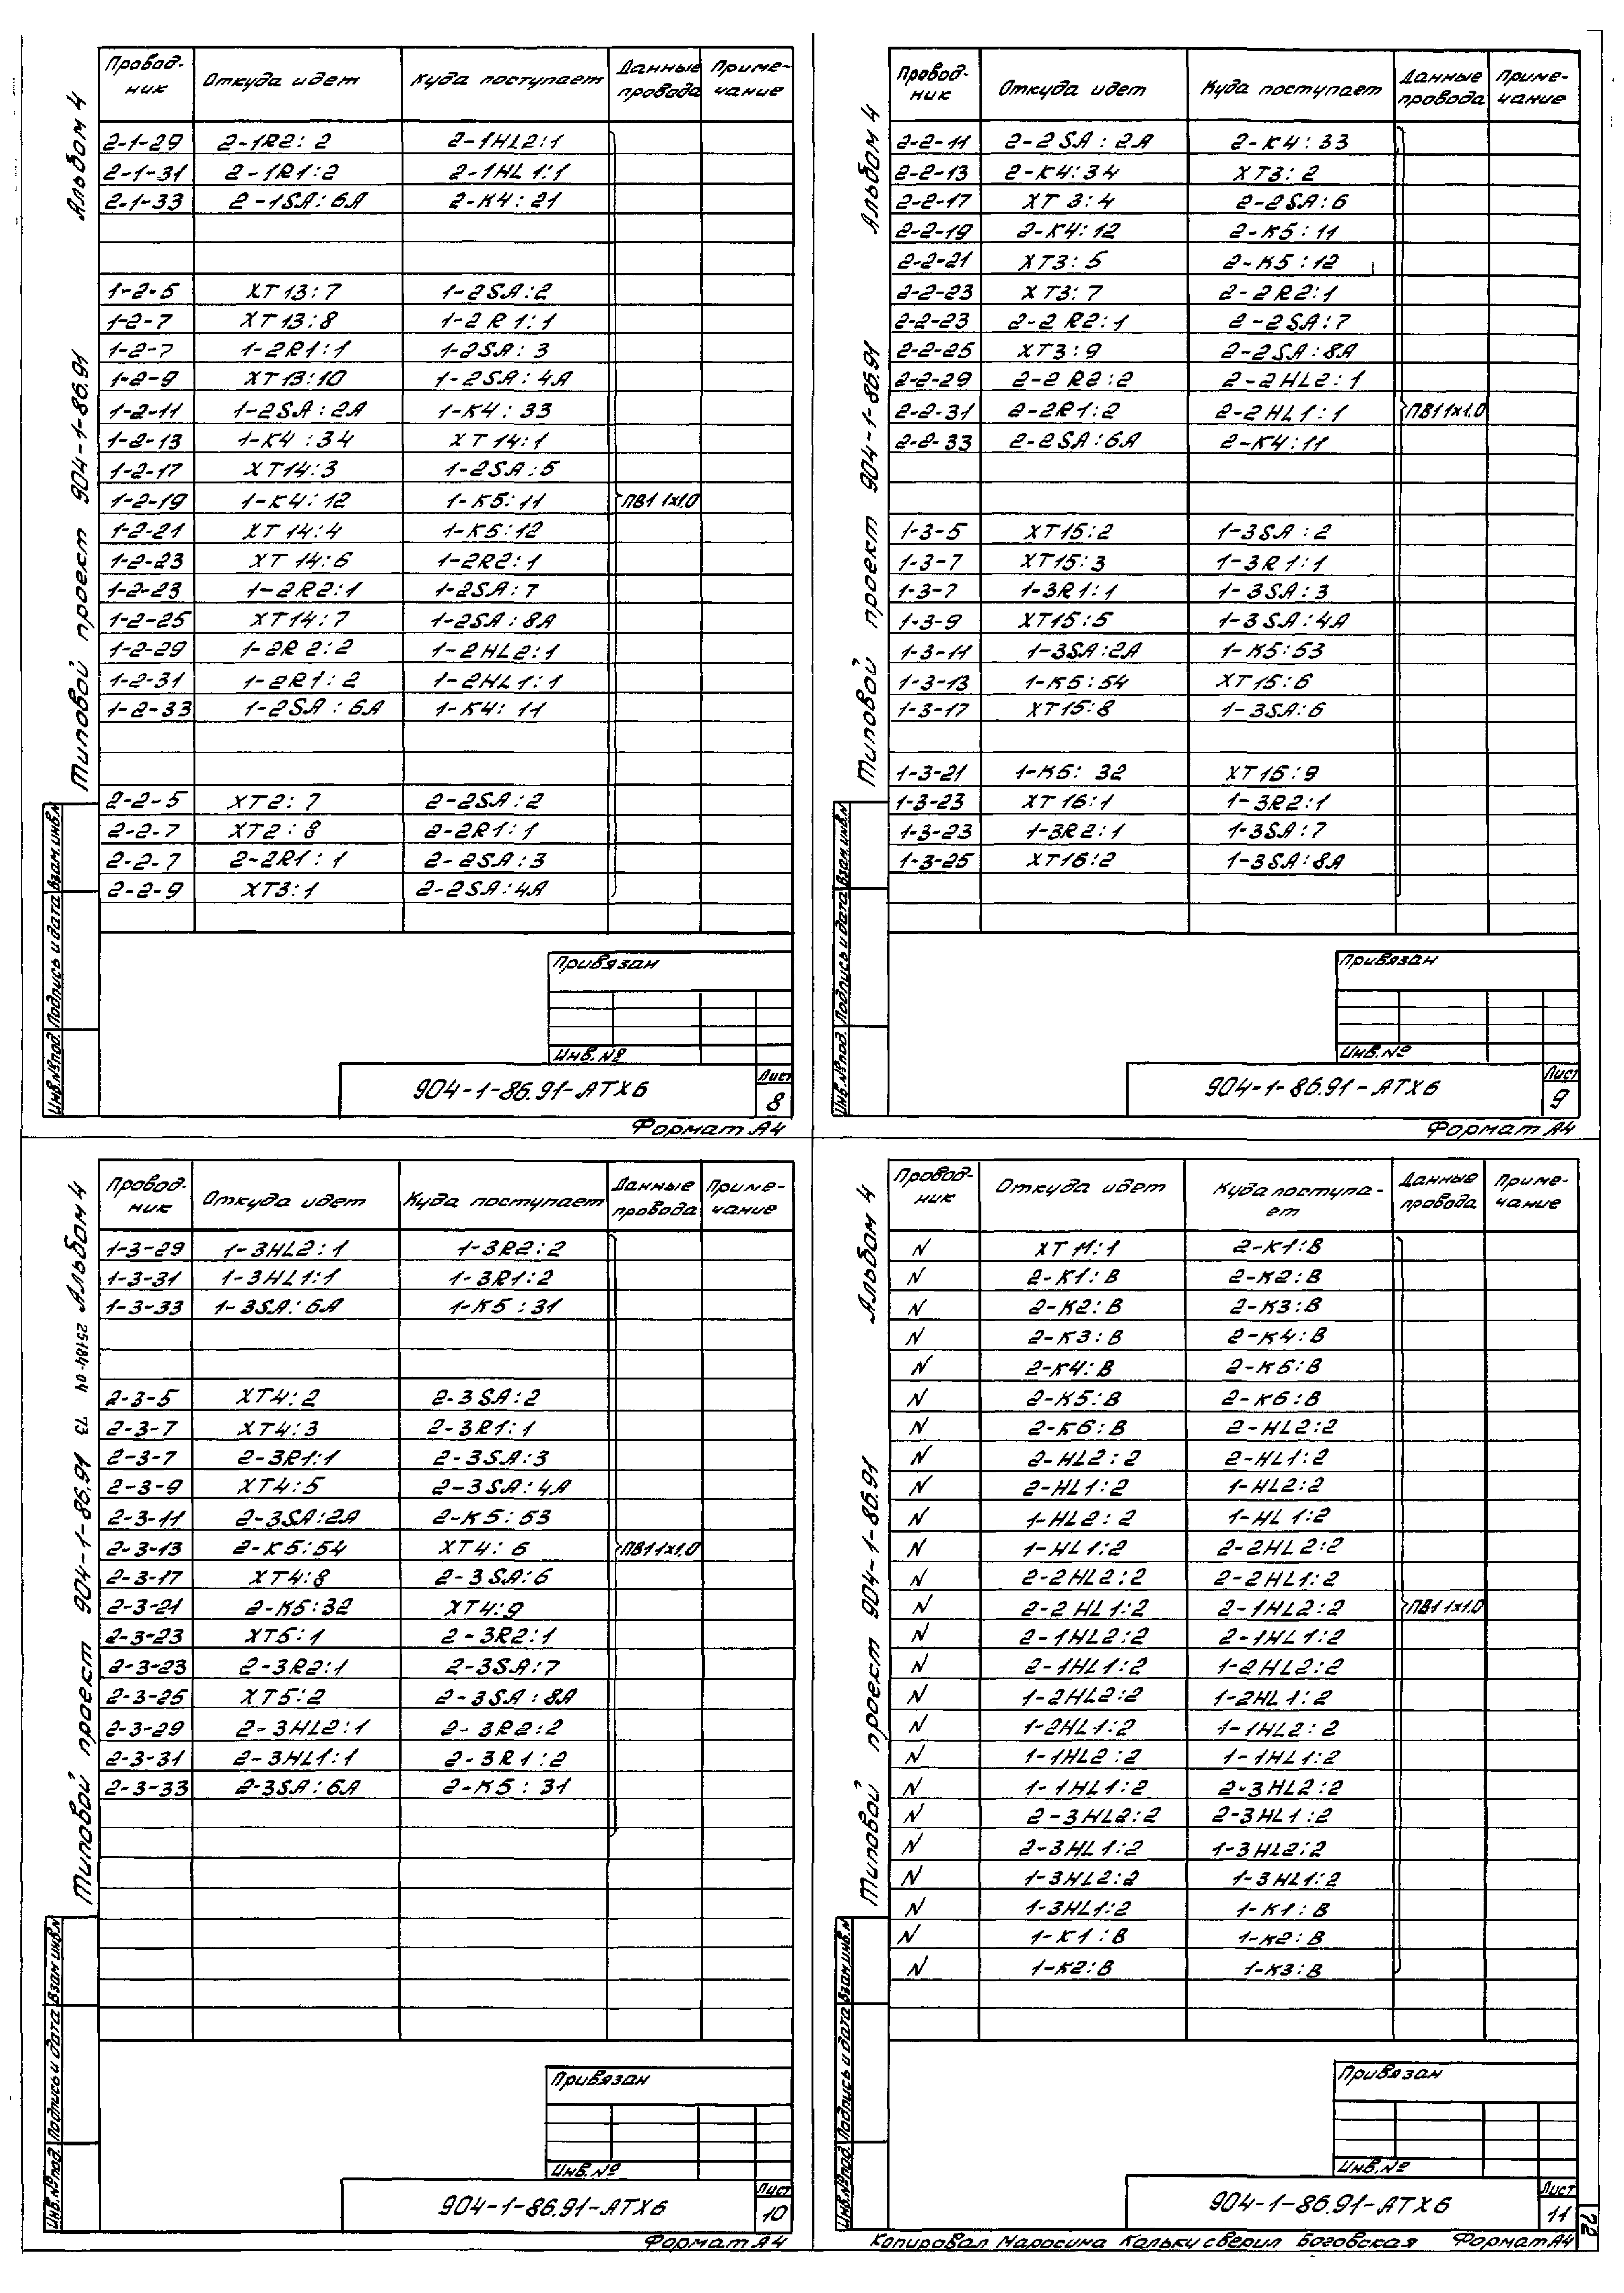 Альбом 4
Типовой проект 904-1-86.91
Провод-ник Откуда идет Куда поступает Данные провода Приме-чание
2-1-29 2-1R2:2 2-1HL2:1
2-1-31 2-1R1:2 2-1HL1:1
2-1-33 2-1SA:6A 2-K4:21
1-2-5 XT13:7 1-2SA:2
1-2-7 XT13:8 1-2R1:1
1-2-7 1-2R1:1 1-2SA:3
1-2-9 XT13:10 1-2SA:4A
1-2-11 1-2SA:2A 1-K4:33
1-2-13 1-K4:34 XT14:1
1-2-17 XT14:3 1-2SA:5
1-2-19 1-K4:12 1-K5:11 ПВ1 1х1,0
1-2-21 XT14:4 1-K5:12
1-2-23 XT14:6 1-2R2:1
1-2-23 1-2R2:1 1-2SA:7
1-2-25 XT14:7 1-2SA:8A
1-2-29 1-2R2:2 1-2HL2:1
1-2-31 1-2R1:2 1-2HL1:1
1-2-33 1-2SA:6A 1-K4:11
2-2-5 XT2:7 2-2SA:2
2-2-7 XT2:8 2-2R1:1
2-2-7 2-2R1:1 2-2SA:3
2-2-9 XT3:1 2-2SA:4A
Привязан
Инв.№
Инв.№ под. Подпись и дата Взам.инв.№
904-1-86.91-АТХ6
Лист
8
Формат А4
Альбом 4
Типовой проект 904-1-86.91
Провод-ник Откуда идет Куда поступает Данные провода Приме-чание
2-2-11 2-2SA:2A 2-K4:33
2-2-13 2-K4:34 XT3:2
2-2-17 XT3:4 2-2SA:6
2-2-19 2-K4:12 2-K5:11
2-2-21 XT3:5 2-K5:12
2-2-23 XT3:7 2-2R2:1
2-2-23 2-2R2:1 2-2SA:7
2-2-25 XT3:9 2-2SA:8A
2-2-29 2-2R2:2 2-2HL2:1
2-2-31 2-2R1:2 2-2HL1:1 ПВ1 1х1,0
2-2-33 2-2SA:6A 2-K4:11
1-3-5 XT15:2 1-3SA:2
1-3-7 XT15:3 1-3R1:1
1-3-7 1-3R1:1 1-3SA:3
1-3-9 XT15:5 1-3SA:4A
1-3-11 1-3SA:2A 1-K5:53
1-3-13 1-K5:54 XT15:6
1-3-17 XT15:8 1-3SA:6
1-3-21 1-K5:32 XT15:9
1-3-23 XT16:1 1-3R2:1
1-3-23 1-3R2:1 1-3SA:7
1-3-25 XT16:2 1-3SA:8A
Привязан
Инв.№
Инв.№ под. Подпись и дата Взам.инв.№
904-1-86.91-АТХ6
Лист
9
Формат А4
Альбом 4
25184-04 73
Типовой проект 904-1-86.91
Провод-ник Откуда идет Куда поступает Данные провода Приме-чание
1-3-29 1-3HL2:1 1-3R2:2
1-3-31 1-3HL1:1 1-3R1:2
1-3-33 1-3SA:6A 1-K5:31
2-3-5 XT4:2 2-3SA:2
2-3-7 XT4:3 2-3R1:1
2-3-7 2-3R1:1 2-3SA:3
2-3-9 XT4:5 2-3SA:4A
2-3-11 2-3SA:2A 2-K5:53
2-3-13 2-K5:54 XT4:6 ПВ1 1х1,0
2-3-17 XT4:8 2-3SA:6
2-3-21 2-K5:32 XT4:9
2-3-23 XT5:1 2-3R2:1
2-3-23 2-3R2:1 2-3SA:7
2-3-25 XT5:2 2-3SA:8A
2-3-29 2-3HL2:1 2-3R2:2
2-3-31 2-3HL1:1 2-3R1:2
2-3-33 2-3SA:6A 2-K5:31
Привязан
Инв.№
Инв.№ под. Подпись и дата Взам инв.№
904-1-86.91-АТХ6
Лист
10
Формат А4
Альбом 4
Типовой проект 904-1-86.91
Провод-ник Откуда идет Куда поступа-ет Данные провода Приме-чание
N XT11:1 2-K1:B
N 2-K1:B 2-K2:B
N 2-K2:B 2-K3:B
N 2-K3:B 2-K4:B
N 2-K4:B 2-K5:B
N 2-K5:B 2-K6:B
N 2-K6:B 2-HL2:2
N 2-HL2:2 2-HL1:2
N 2-HL1:2 1-HL2:2
N 1-HL2:2 1-HL1:2
N 1-HL1:2 2-2HL2:2
N 2-2HL2:2 2-2HL1:2
N 2-2HL1:2 2-1HL2:2 ПВ1 1х1,0
N 2-1HL2:2 2-1HL1:2
N 2-1HL1:2 1-2HL2:2
N 1-2HL2:2 1-2HL1:2
N 1-2HL1:2 1-1HL2:2
N 1-1HL2:2 1-1HL1:2
N 1-1HL1:2 2-3HL2:2
N 2-3HL2:2 2-3HL1:2
N 2-3HL1:2 1-3HL2:2
N 1-3HL2:2 1-3HL1:2
N 1-3HL1:2 1-K1:B
N 1-K1:B 1-K2:B
N 1-K2:B 1-K3:B
Привязан
Инв.№
Инв.№ под. Подпись и дата Взам.инв.№
904-1-86.91-АТХ6
Лист
11
72
Копировал Маросина Кальку сверил Боговская Формат А4